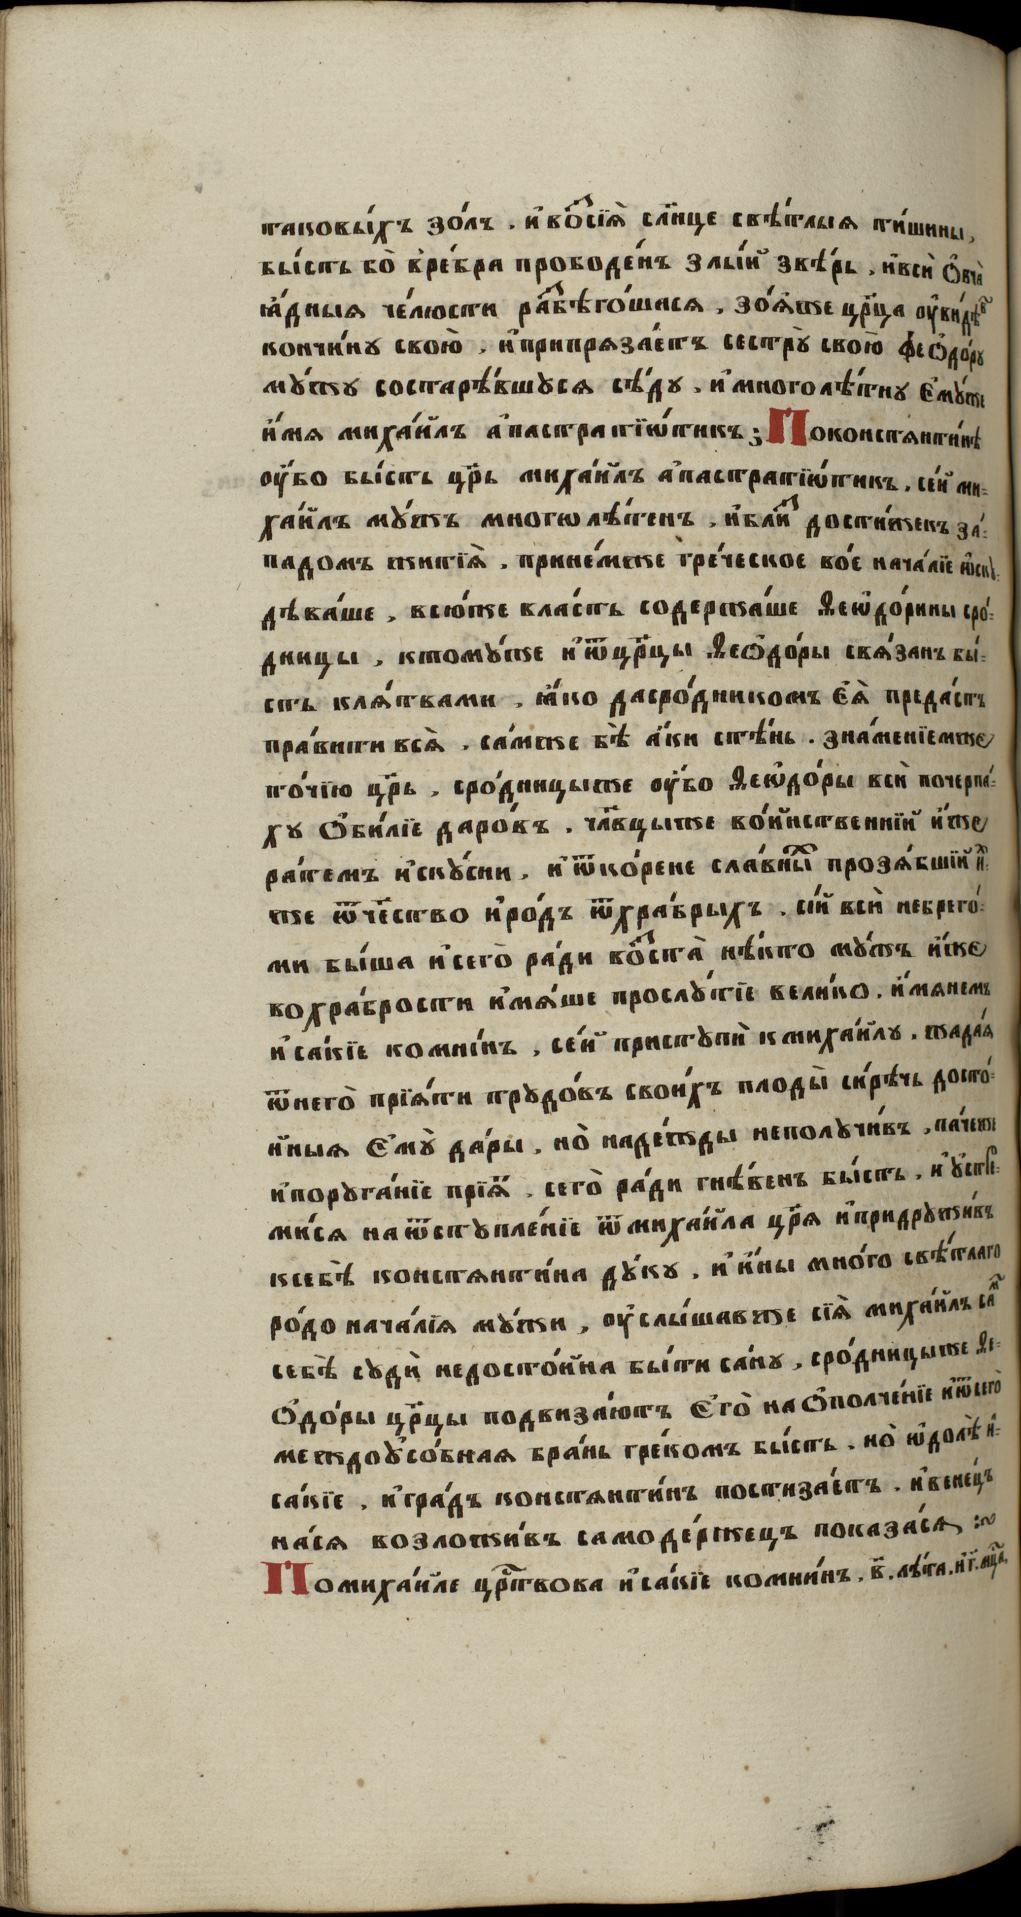 таковы́хъ зо́лъ . и҆во́зсїѧ̀ сл҃нце свѣ́тлыѧ ти́шины ,
бы́сть бо̀ в̾ре́бра прободе́нъ злы́й звѣ́рь , и҆всѝ ѻ҆вча̀
ꙗ҆́дныѧ че́люсти разбѣго́шасѧ , зо́ѧже цр҃ца ᲂу҆ви́дѣв
кончи́нꙋ свою̀ . и҆припрѧза́етъ сестрꙋ̀ свою̀ феѡдо́рꙋ
мꙋ́жꙋ состарѣ́вшꙋсѧ сѣ́дꙋ , и҆многолѣ́тнꙋ є҆мꙋ́же
и҆́мѧ михаи́лъ а҆пастратїѡ́тикъ ; Поконстѧнти́нѣ
ᲂу҆́бо бы́сть цр҃ь михаи́лъ а҆пастратїѡ́тикъ , се́й ми-
хаи́лъ мꙋ́жъ многолѣ́тенъ , и҆бли́з дости́жекъ за́-
падомъ житїѧ̀ . прине́мже гре́ческое во́е нача́лїе ѡ҆скꙋ-
дѣва́ше , всю́же власть содержа́ше Ѳеѡдо́рины сро́-
дницы , ктомꙋ́же и҆ѿцр҃цы Ѳеѡдо́ры свѧ́занъ бы́-
сть клѧ́твами , ꙗ҆́ко дасро́дникомъ є҆ѧ̀ преда́стъ
пра́вити всѧ̀ . са́мже бѣ̀ а҆́ки стѣ́нь . зна́менїемже
то́чїю цр҃ь , сро́дницыже ᲂу҆́бо Ѳеѡдо́ры всѝ почерпа́-
хꙋ ѻ҆би́лїе даро́въ . чл҃вцыже во́инственнїи и҆́же
ра́темъ и҆скꙋ́сни . и҆ѿко́рене сла́вных прозѧ́бшїи и҆-
же ѿче́ство и҆ро́дъ ѿхра́брыхъ . сі́и всѝ небрего́-
ми бы́ша и҆сегѡ̀ ра́ди воз̾ста̀ нѣ́кто мꙋ́жъ и҆́же
вохра́брости и҆мѧ́ше прослꙋ́тїе вели́ко . и҆́мѧнемъ
и҆са́кїе комни́нъ , се́й пристꙋпѝ кмихаи́лꙋ . жада́ѧ
ѿнегѡ̀ прїѧ́ти трꙋдо́въ свои́хъ плоды̀ си́рѣчь досто́-
йныѧ є҆мꙋ̀ да́ры , но̀ наде́жды неполꙋчи́въ , па́чеже
и҆порꙋга́нїе прїѧ̀т . сегѡ̀ ра́ди гнѣ́венъ бы́сть . и҆ᲂу҆стре-
ми́сѧ наѿстꙋпле́нїе ѿмихаи́ла цр҃ѧ и҆придрꙋжи́въ
ксебѣ̀ констѧнти́на дꙋ́кꙋ , и҆и҆́ны мно́го свѣ́тлаго
ро́до нача́лїѧ мꙋ́жи , ᲂу҆слы́шавже сїѧ̀ михаи́лъ сам
себѣ̀ сꙋдѝ недосто́йна бы́ти са́нꙋ , сро́дницыже Ѳе-
ѡдо́ры цр҃цы подвиза́ютъ є҆гѡ̀ наѻ҆полче́нїе и҆ѿсегѡ̀
междоꙋ҆со́бнаѧ бра́нь гре́комъ бы́сть . но̀ ѡ҆долѣ̀ и҆-
са́кїе . и҆гра́дъ констѧнти́нъ постиза́етъ . и҆вене́цъ
на́сѧ возложи́въ самоде́ржецъ показа́сѧ :~
Помихаи́ле цр҃ствова и҆са́кїе комни́нъ . в҃ . лѣ́та . и҆г҃ . мц҃а .